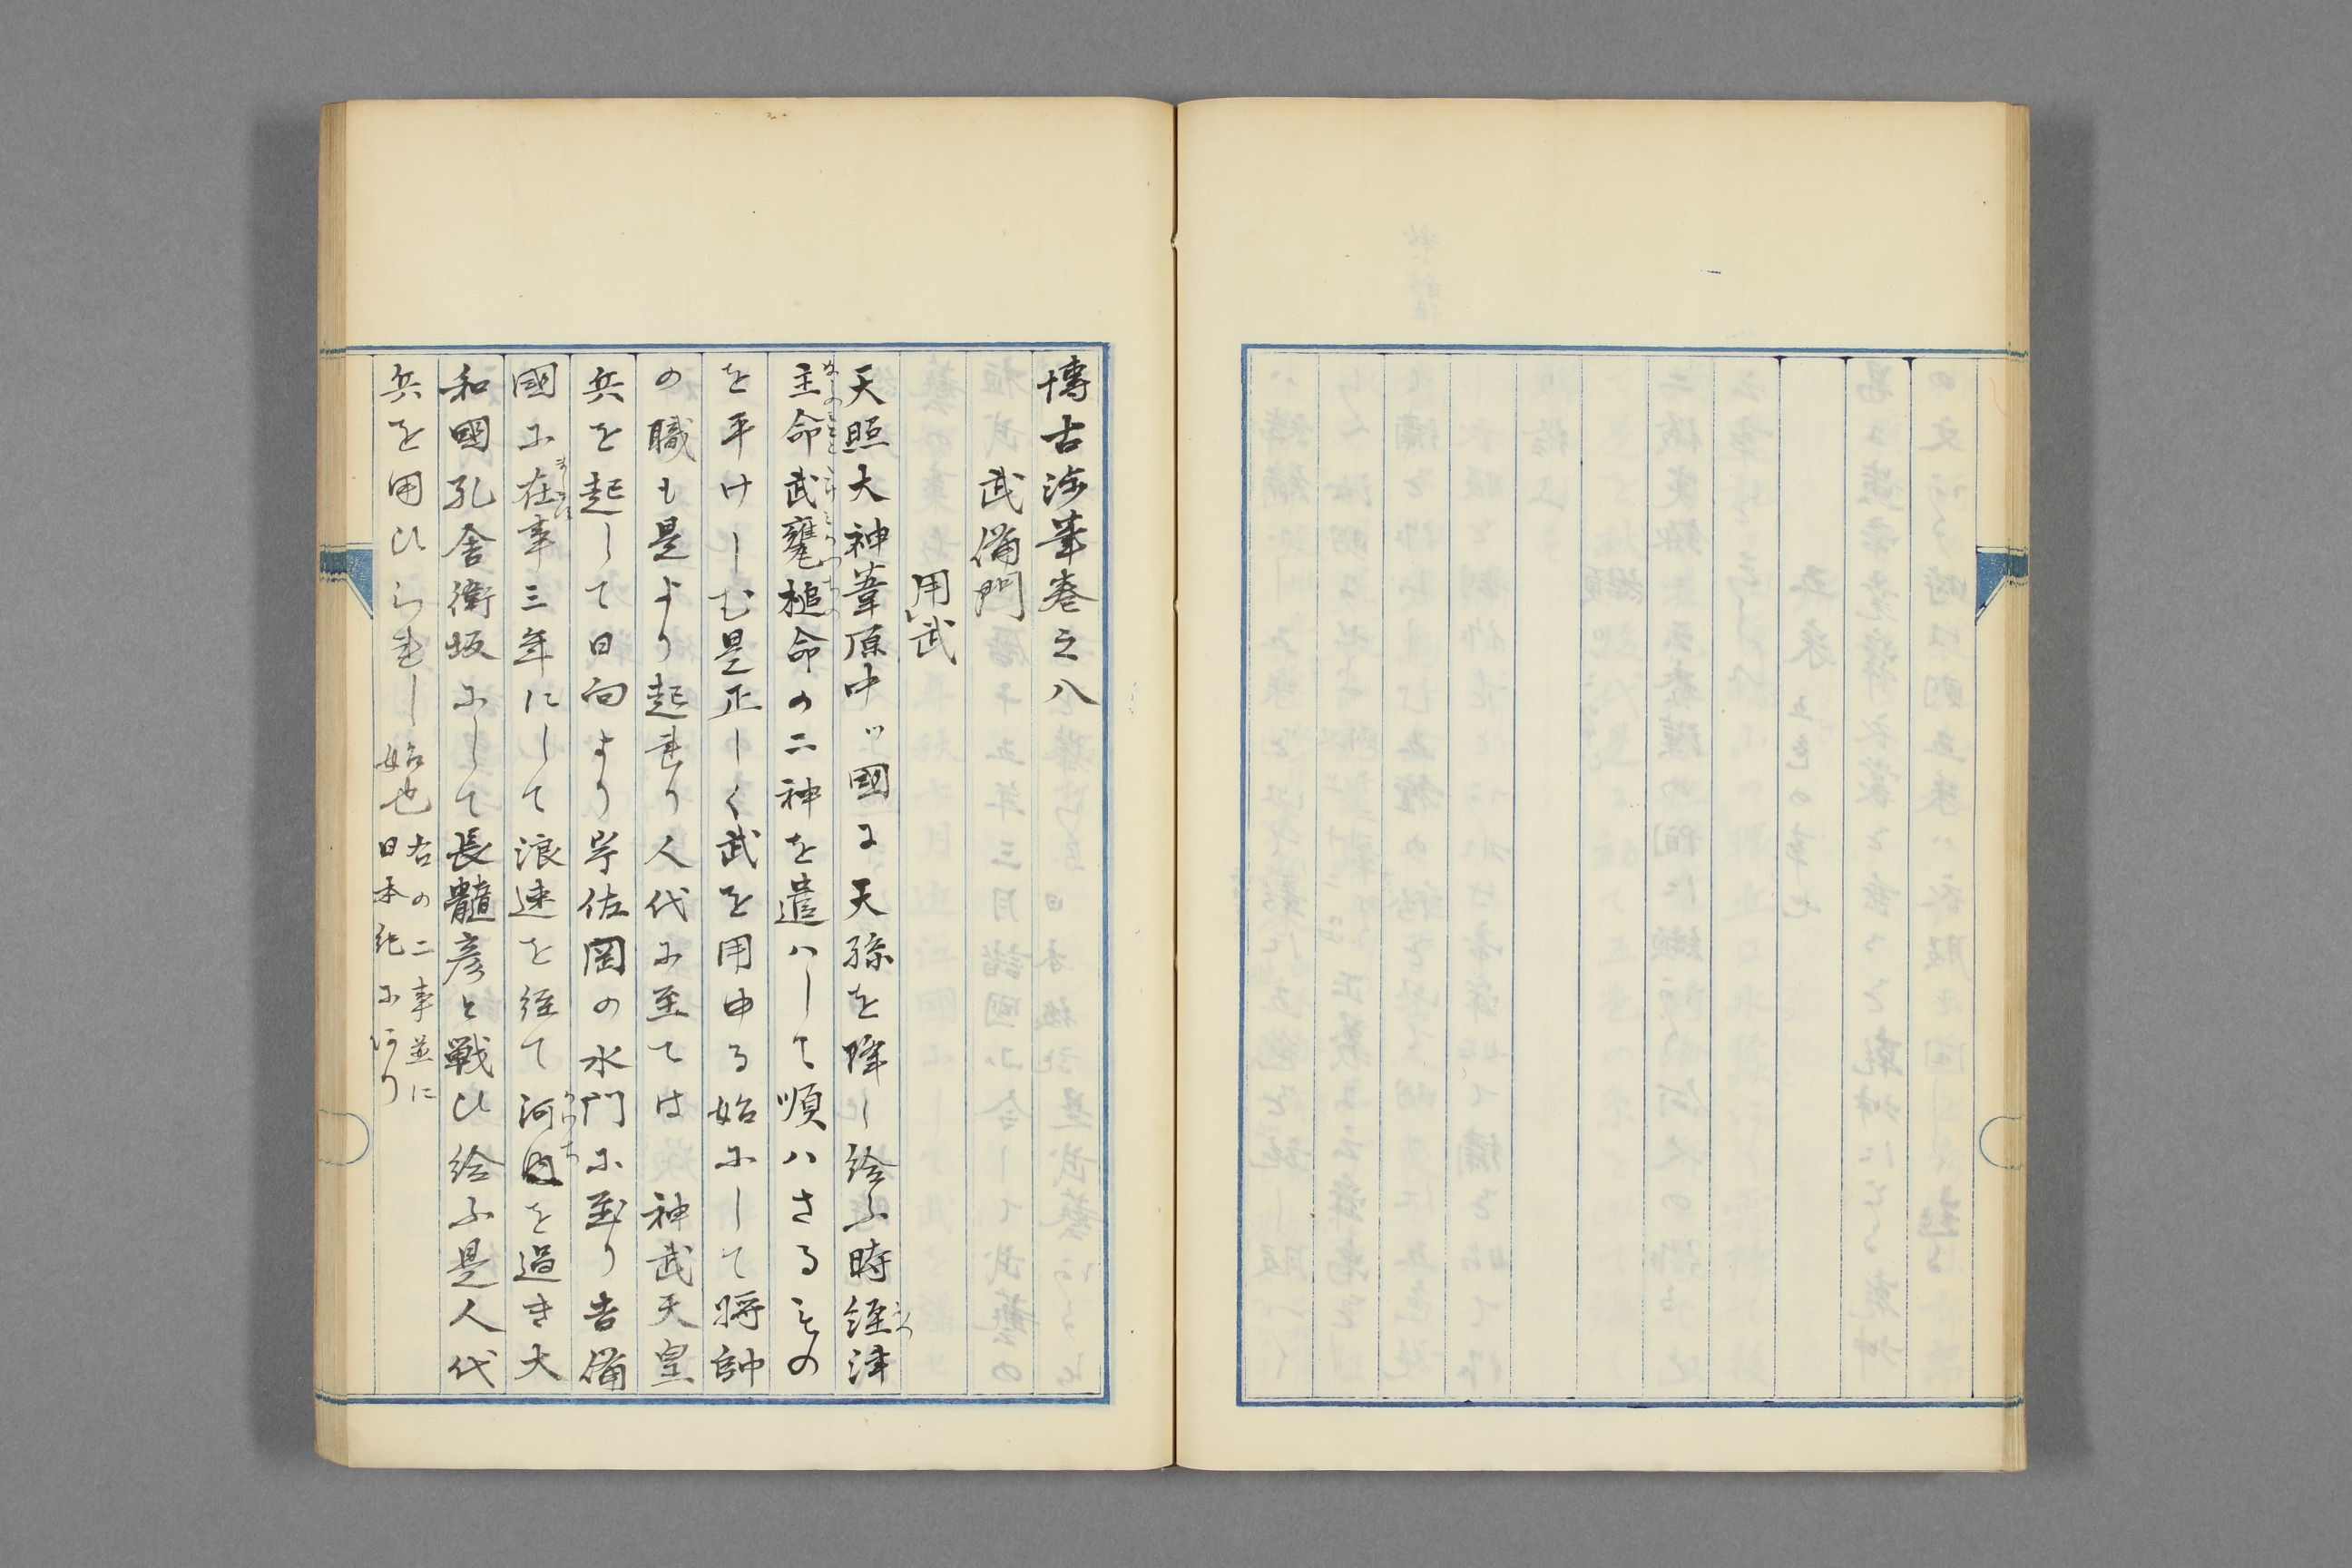 博古海荃巻之八
武備門
用武
天照大神葦原中ツ國に天孫を降し給ふ時經津
主命武甕槌命の二神を遣ハして順ハさるもの
を平けしむ是正しく武を用ゆる始にして將帥
の職も是より起れり人代に至ては 神武天皇
兵を起して日向より岢佐岡の水門に至り吉備
國に在事三年にして浪速を経て河内を過き大
和國孔舎衛坂にして長髓彦と戦ひ給ふ是人代
兵を用ひられし始也右の二事並に
日本紀にあり